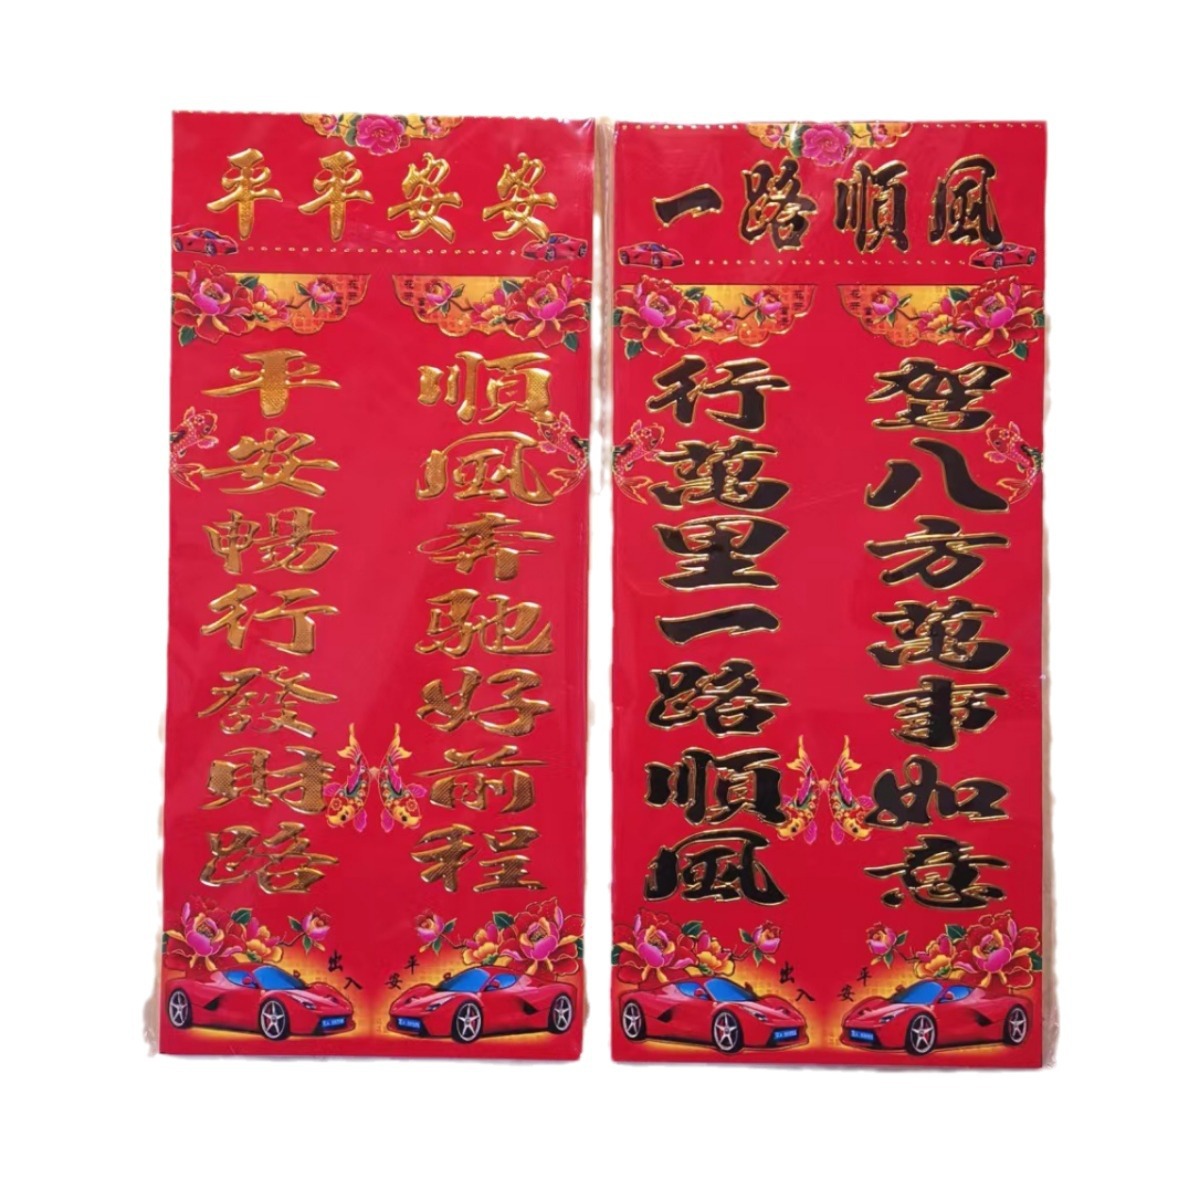 平平安安
平安暢行發財路
順風奔馳好前程
出入
平安
一路順風
行萬里一路順風
駕八方萬事如意
出入
平安